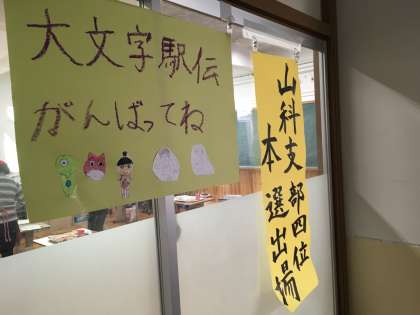 大文字駅伝
がんばってね
山科支部四位
本選出場